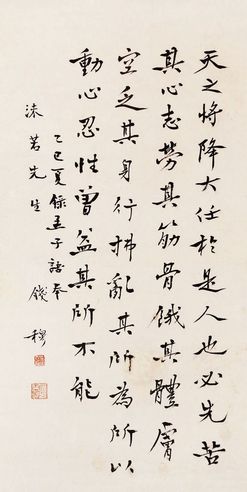 天之將降大任於是人也必先苦
其心志勞其筋骨餓其體膚
空乏其身行拂亂其所為所以
動心忍性曾益其所不能
乙巳夏錄孟子語奉
沫若先生
錢穆